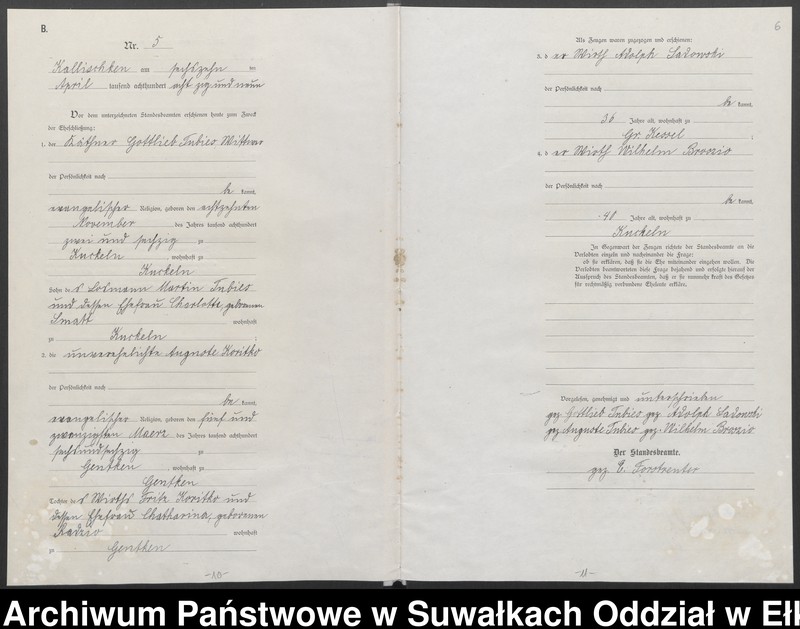 B.
Nr. 5
Kallischken am sechszehn ten
April tausend achthundert acht zig und neun
Vor dem unterzeichneten Standesbeamten erschienen heute zum Zweck
der Eheschließung:
1. der Käthner Gottlieb Tubies Wittwer
der Persönlichkeit nach
be kannt,
evangelischer Religion, geboren den achtzehnten
November des Jahres tausend achthundert
zwei und sechzig zu
Kuckeln, wohnhaft zu
Kuckeln
Sohn des Losmann Martin Tubies
und dessen Ehefrau Charlotte, geborenen
wohnhaft
zu Kuckeln;
2. die unverehelichte Auguste Koritko
der Persönlichkeit nach
be kannt,
evangelischer Religion, geboren den fünf und
zwanzigsten Maerz des Jahres tausend achthundert
sechsundsechzig zu
Gentken, wohnhaft zu
Gentken
Tochter des Wirths Fritz Koritko und
dessen Ehefrau Chatharina, geborenen
wohnhaft
zu Gentken
-10-
6
Als Zeugen waren zugezogen und erschienen:
3. der Wirth Adolph Sadowski
der Persönlichkeit nach
be kannt,
36 Jahre alt, wohnhaft zu
Gr. Kessel;
4. der Wirth Wilhelm Brozio
der Persönlichkeit nach
be kannt,
40 Jahre alt, wohnhaft zu
Kuckeln
In Gegenwart der Zeugen richtete der Standesbeamte an die
Verlobten einzeln und nacheinander die Frage:
ob sie erklären, daß sie die Ehe miteinander eingehen wollen. Die
Verlobten beantworteten diese Frage bejahend und erfolgte hierauf der
Ausspruch des Standesbeamten, daß er sie nunmehr kraft des Gesetzes
für rechtmäßig verbundene Eheleute erkläre.
Vorgelesen, genehmigt und unterschrieben
gez Gottlieb Tubies gez Adolph Sadowski
gez Auguste Tubies gez. Wilhelm Brozio
Der Standesbeamte.
gez E. Forstreuter
-11-
Archiwum Państwowe w Suwałkach Oddział w Ełk